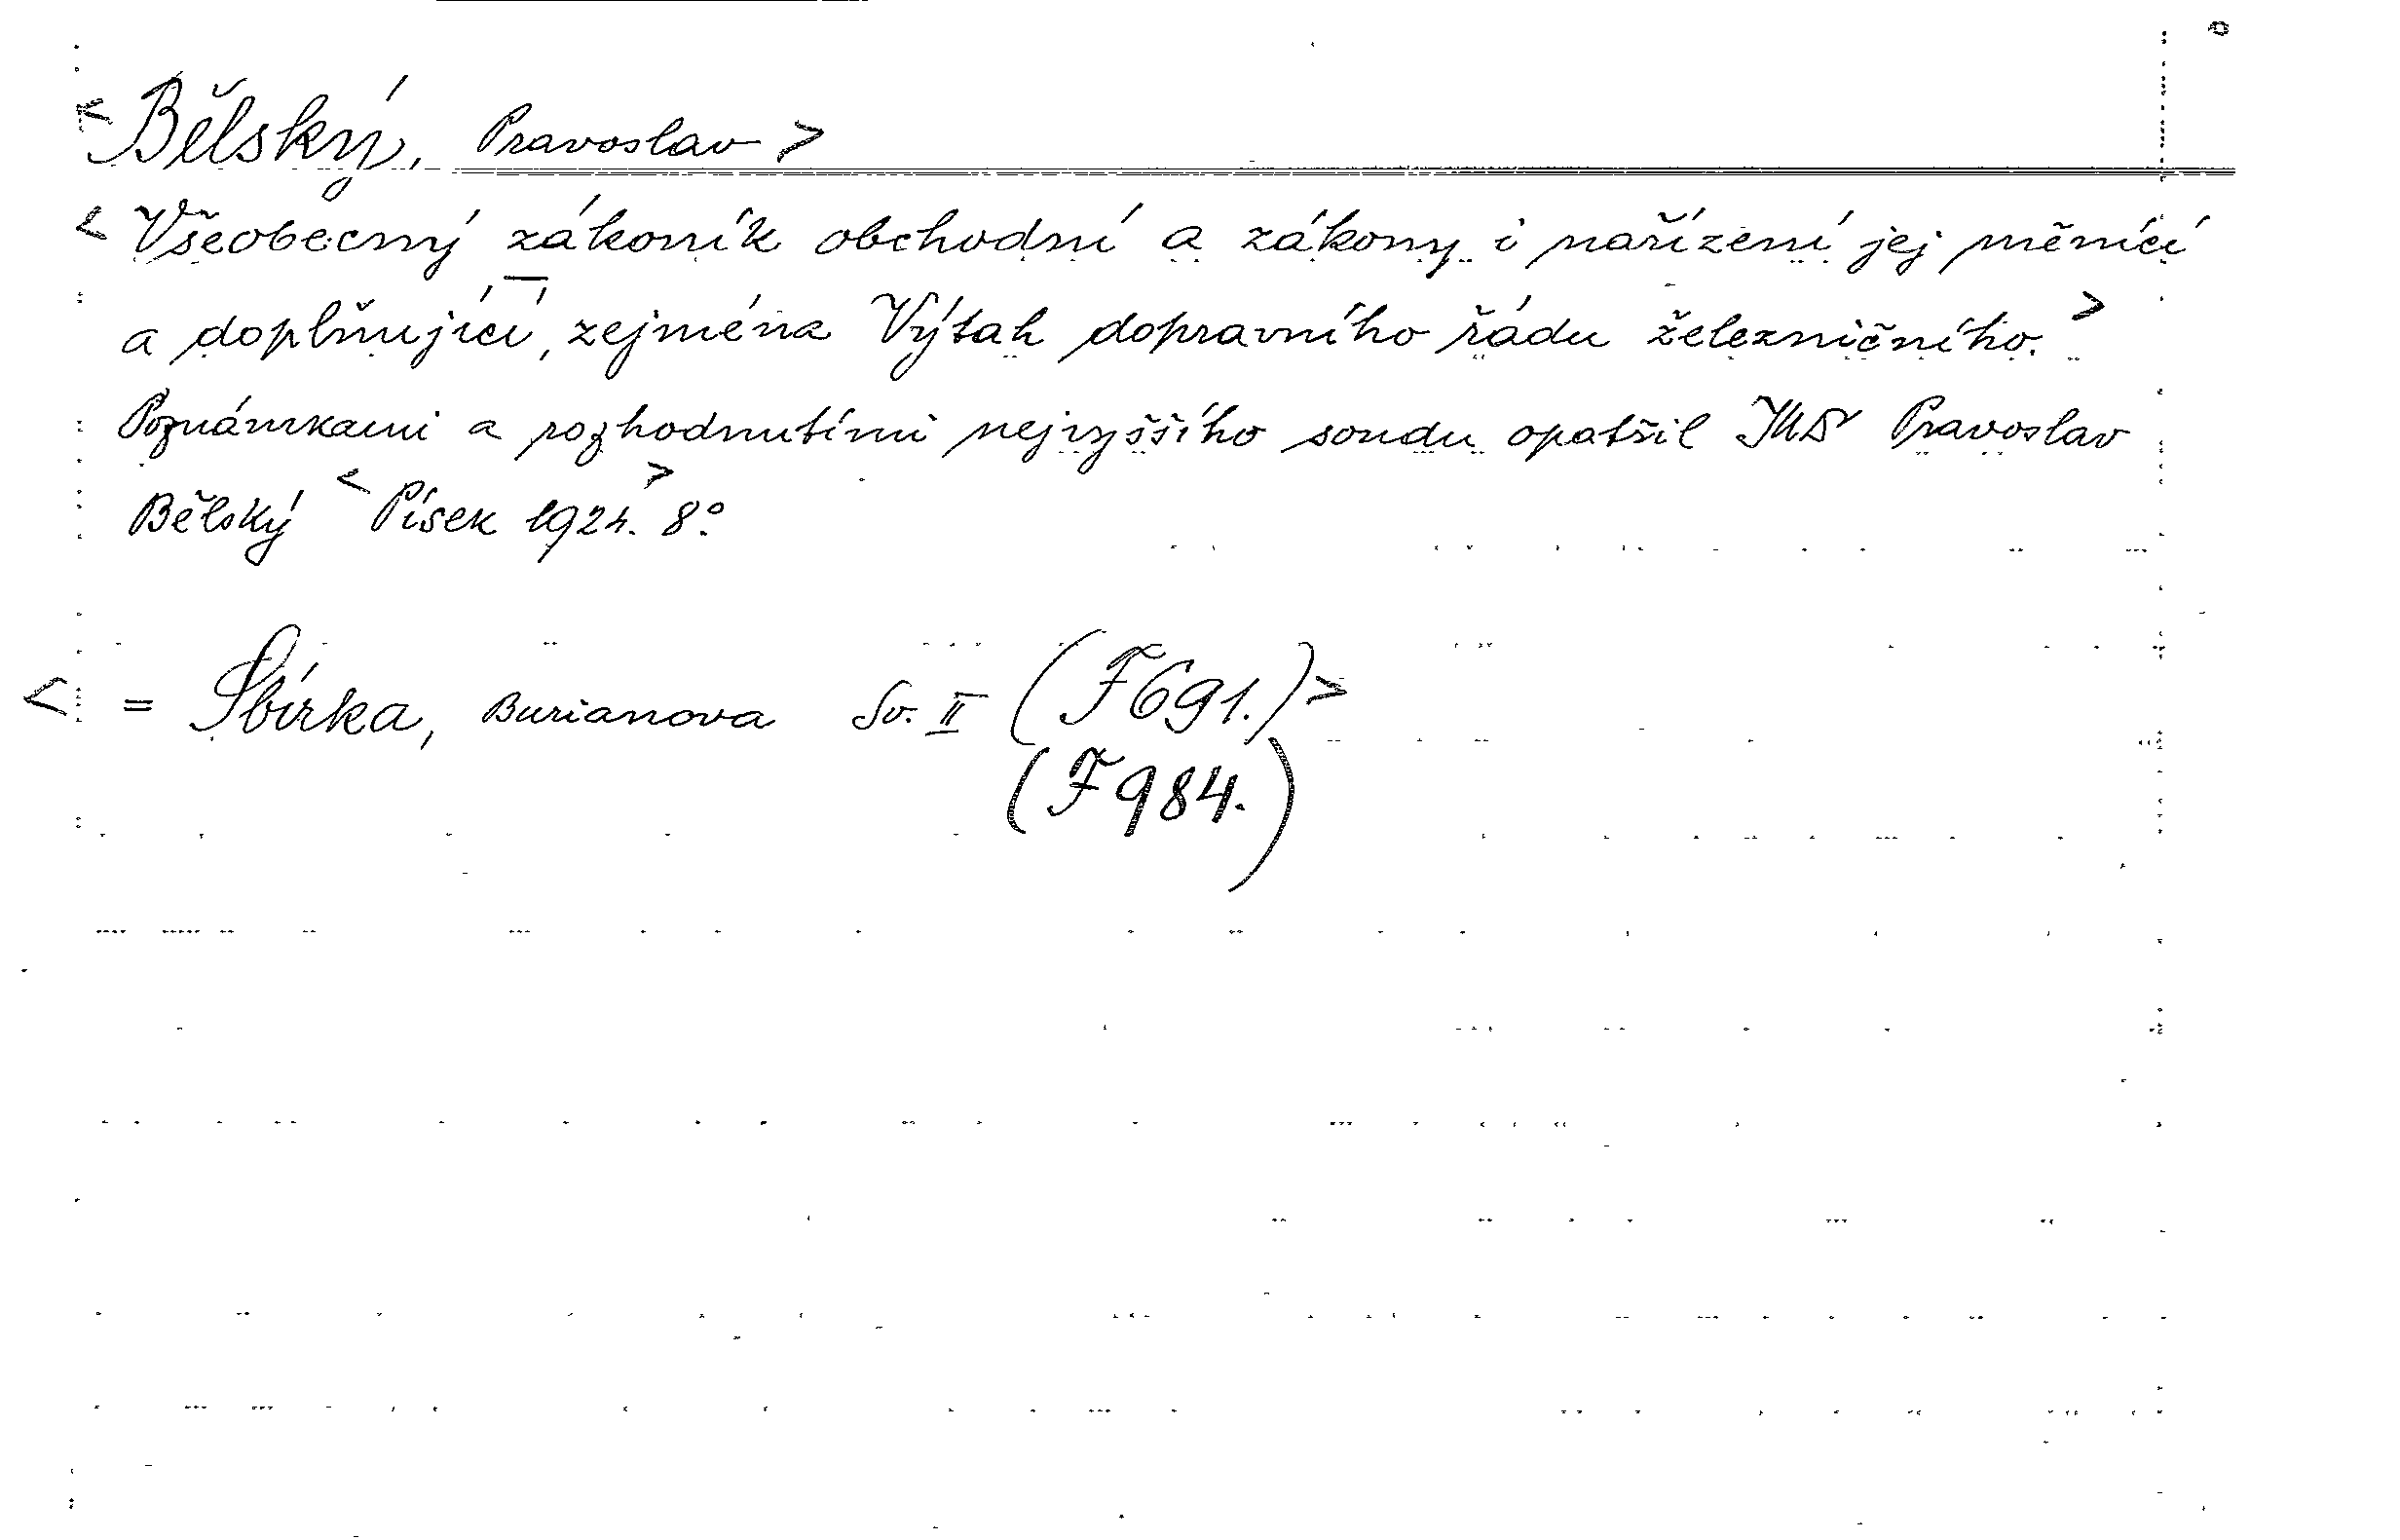 <Bělský, Pravoslav>
<Všeobecný zákoník obchodní a zákony i nařízení jej měnící
a doplňující, zejména Výtah dopravního řádu železničního.>
Poznámkami a rozhodnutími nejvyššího soudu opatřil JUDr Pravoslav
Bělský <Písek 1924.> 8°.
<= Sbírka, Burianova Sv. II (F691.)>
(F984.)